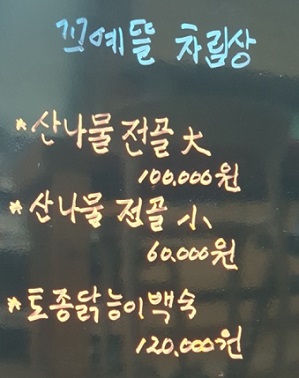 꼬예뜰 차림상
*산나물 전골 大
100.000원
*산나물 전골 小
60.000원
*토종닭능이백숙
120.000원